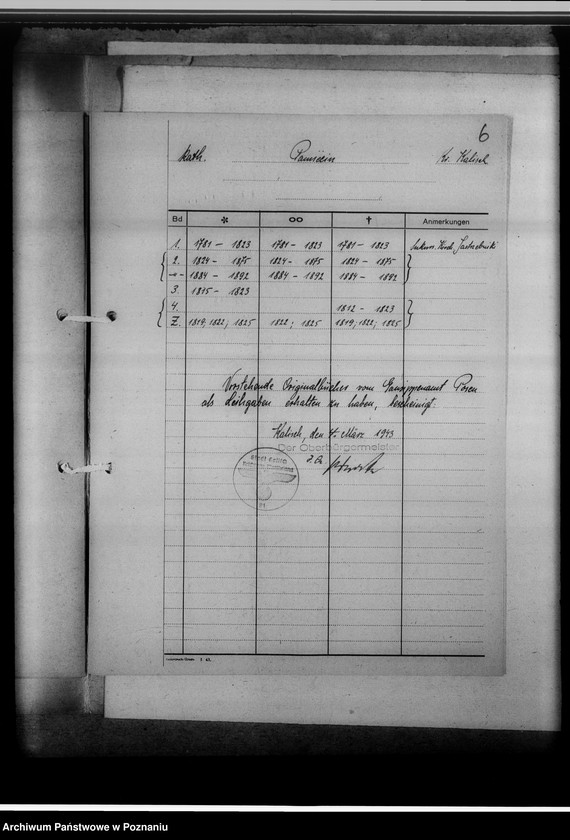 6
Kath. Pamięcin Kr. Kalisch
Bd * ∞ † Anmerkungen
1. 1781 – 1823 1781 – 1823 1781 – 1823
2. 1824 – 1875 1824 – 1875 1824 – 1875
-"- 1884 – 1892 1884 – 1892 1884 – 1892
3. 1815 – 1823
4. 1812 – 1823
Z. 1819; 1822; 1825 1822; 1825 1819; 1822; 1825
Vorstehende Originalbücher vom Gausippenamt Posen
als Leihgaben erhalten zu haben, bescheinigt:
Kalisch, den 4. März 1943
Der Oberbürgermeister
Archiwum Państwowe w Poznaniu